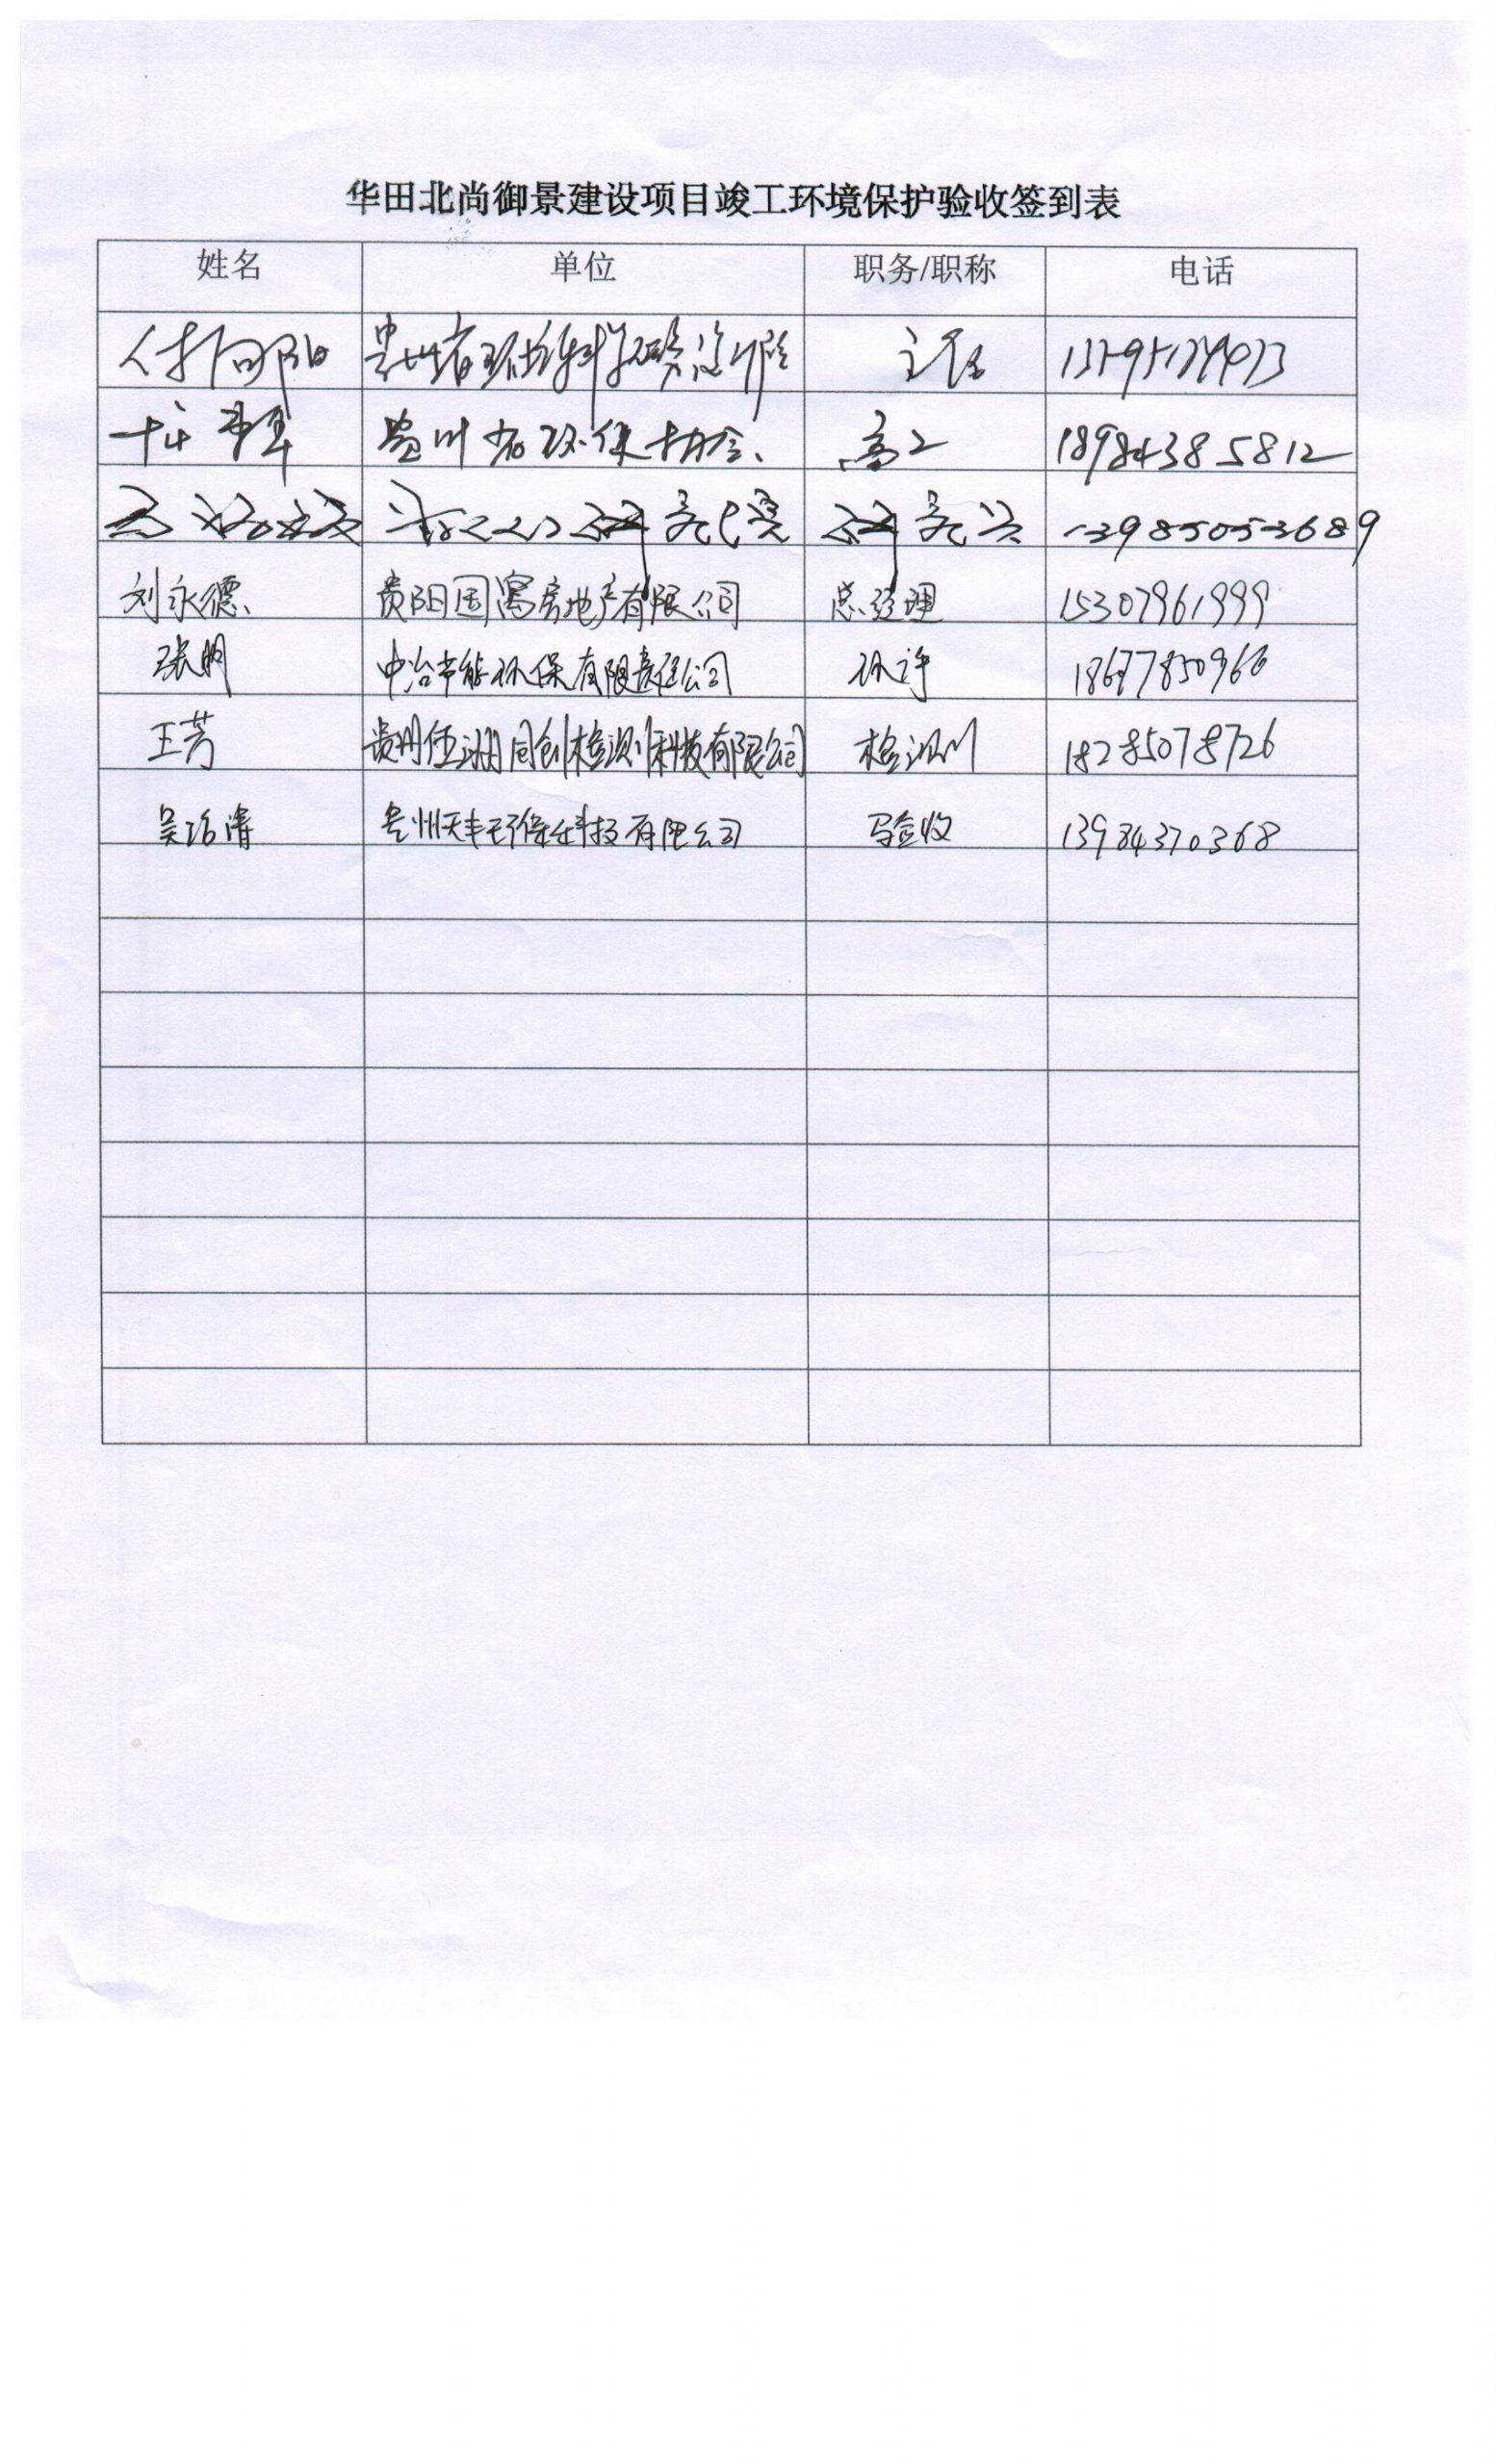 华田北尚御景建设项目竣工环境保护验收签到表
姓名 单位 职务/职称 电话
付向阳 贵州省环境科学研究设计院 主任
贵州省环保协会 高工 18984385812
研究员 13985053689
刘永德 贵阳国寓房地产有限公司 总经理 15307961999
张明 中冶节能环保有限责任公司 环评 18677850966
王芳 贵州伍洲同创检测科技有限公司 检测 18285078726
吴治清 贵州天丰环保科技有限公司 验收 13984370368